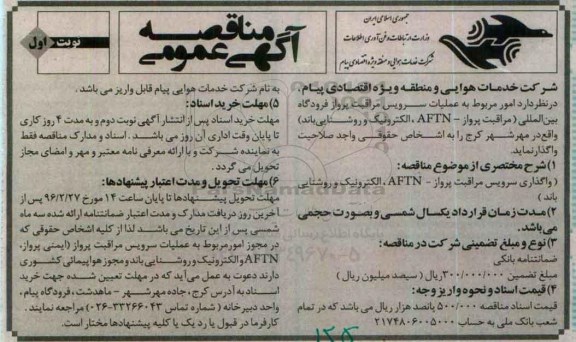 جمهوری اسلامی ایران
وزارت ارتباطات و فن آوری اطلاعات
شرکت خدمات هوایی و منطقه ویژه اقتصادی پیام
مناقصه
آگهی عمومی
نوبت اول
شرکت خدمات هوایی و منطقه ویژه اقتصادی پیام
درنظردارد امور مربوط به عملیات سرویس مراقبت پرواز فرودگاه
بین‌المللی ( مراقبت پرواز - AFTN ، الکترونیک و روشنایی‌باند)
واقع‌در مهرشهر کرج را به اشخاص حقوقی واجد صلاحیت
واگذارنماید.
۱) شرح مختصری از موضوع مناقصه:
( واگذاری سرویس مراقبت پرواز - AFTN ، الکترونیک و روشنایی
باند )
۲) مدت زمان قرارداد یکسال شمسی و بصورت حجمی
می‌باشد.
۳) نوع و مبلغ تضمینی شرکت در مناقصه:
ضمانتنامه بانکی
مبلغ تضمین ۳۰۰/۰۰۰/۰۰۰ریال ( سیصد میلیون ریال )
۴) قیمت اسناد و نحوه واریز وجه:
قیمت اسناد مناقصه ۵۰۰/۰۰۰ پانصد هزار ریال می باشد که در تمام
شعب بانک ملی به حساب ۲۱۷۴۸۰۶۰۰۵۰۰۰
به نام شرکت خدمات هوایی پیام قابل واریز می باشد.
۵) مهلت خرید اسناد:
مهلت خرید اسناد پس از انتشار آگهی نوبت دوم و به مدت ۴ روز کاری
تا پایان وقت اداری آن روز می باشد. اسناد و مدارک مناقصه فقط
به نماینده شرکت و با ارائه معرفی نامه معتبر و مهر و امضای مجاز
تحویل می گردد.
۶) مهلت تحویل و مدت اعتبار پیشنهادها:
مهلت تحویل پیشنهادها تا پایان ساعت ۱۴ مورخ ۹۶/۲/۲۷ پس از
آخرین روز دریافت مدارک و مدت اعتبار ضمانتنامه ارائه شده سه ماه
شمسی پس از این تاریخ می باشد. لذا از کلیه اشخاص حقوقی که
در مجوز امور مربوط به عملیات سرویس مراقبت پرواز (ایمنی پرواز،
AFTN و الکترونیک و روشنایی باند و مجوز هواپیمائی کشوری
دارند دعوت به عمل می‌آید که در مهلت تعیین شده جهت خرید
اسناد به آدرس کرج، جاده مهرشهر - ماهدشت، فرودگاه پیام،
واحد دبیرخانه ( شماره تماس ۳۳۲۶۶۰۴۳-۰۲۶) مراجعه نمایند.
کارفرما در قبول یا رد یک یا کلیه پیشنهادها مختار است.